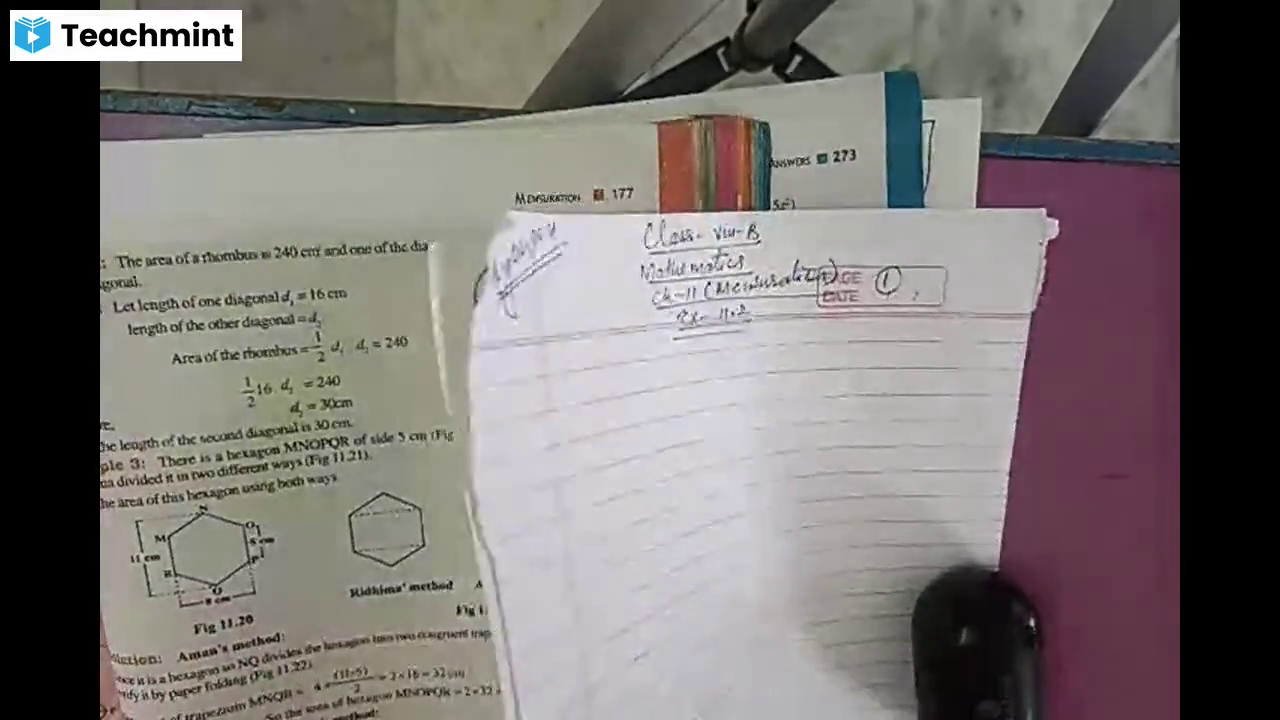 Teachmint
ANSWERS 273
MENSURATION 177
: The area of a rhombus is 240 cm² and one of the dia
gonal.
Let length of one diagonal d₁ = 16 cm
length of the other diagonal = d₂
Area of the rhombus = 1/2 d₁ . d₂ = 240
1/2 16 . d₂ = 240
d₂ = 30cm
he length of the second diagonal is 30 cm.
ple 3: There is a hexagon MNOPQR of side 5 cm (Fig
na divided it in two different ways (Fig 11.21).
he area of this hexagon using both ways
N
M
O
11 cm
5 cm
P
R
Q
8 cm
Fig 11.20
Ridhima' method
Fig 1
lution: Aman's method:
nce it is a hexagon so NQ divides the hexagon into two congruent trap
rify it by paper folding (Fig 11.22)
of trapezium MNQR = 4 (11+5)/2 = 2 × 16 = 32 cm
So the area of hexagon MNOPQR = 2 × 32
method:
Class- VIII-B
Mathematics
Ch-11 (Mensuration)
PAGE 1
DATE
Ex- 11.2